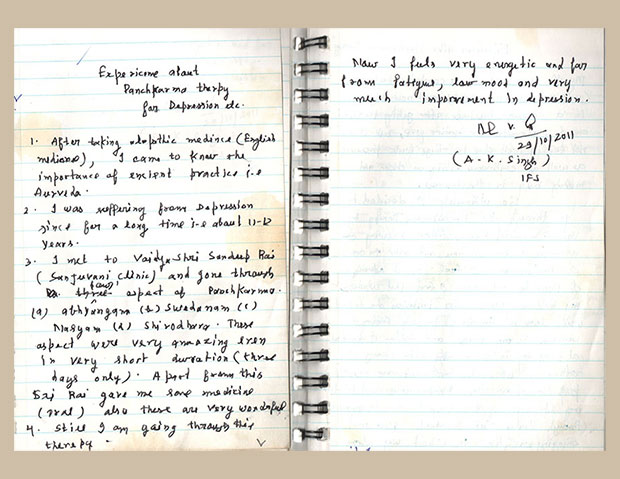 Expericome about
Panchkarma therpy
for Depression etc.
1. After taking alopathic medince (English
medicines), I came to know the
importance of encient practice i.e
Aurveda.
2. I was suffering from Depression
since for a long time i.e about 11-12
years.
3. I met to Vaidya Shri Sandeep Rai
(Sanjuvani Clinic) and gone through
four
three aspect of Panchkarma.
(a) abhyangam (b) Swedanam (c)
Nasyam (d) Shirodhara. These
aspect were very amazing even
in very short duration (three
days only). Apart from this
Sri Rai gave me some medicine
(oral) also these are very wondrful
4. Still I am going through this
therepy.
Now I fuls very energetic and far
from fatigue, low mood and very
much imporvement in depression.
29/10/2011
(A. K. Singh)
IFS